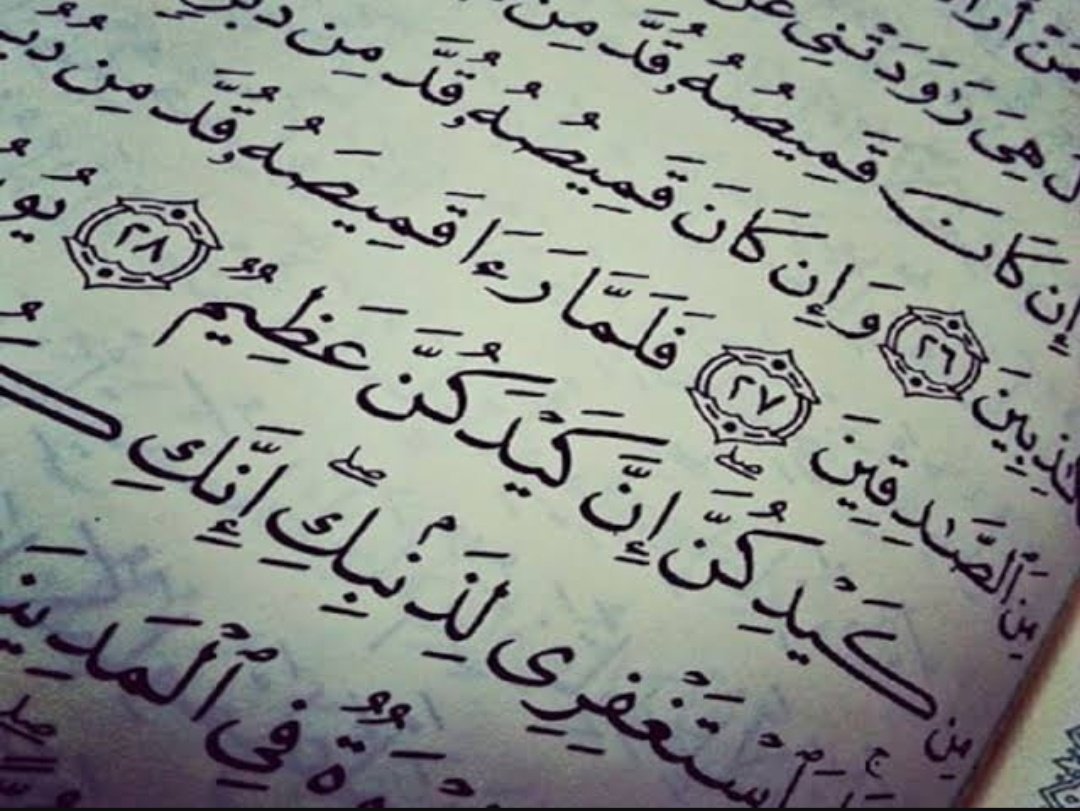 مَنْ أَرَا
لَ هِيَ رَٰوَدَتْنِي عَن
إِن كَانَ قَمِيصُهُۥ قُدَّ مِن
ذِبِينَ ٢٦ وَإِن كَانَ قَمِيصُهُۥ قُدَّ مِن دُبُرٍ
مِنَ ٱلصَّٰدِقِينَ ٢٧ فَلَمَّا رَءَا قَمِيصَهُۥ قُدَّ مِن دُبُ
مِن كَيْدِكُنَّۖ إِنَّ كَيْدَكُنَّ عَظِيمٌ ٢٨ يُو
ٱسْتَغْفِرِى لِذَنۢبِكِۖ إِنَّكِ كُ
وَةٌ فِي ٱلْمَدِينَ